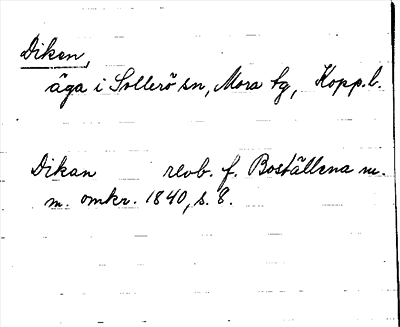 Diken,
äga i Sollerö sn, Mora tg, Kopp.l.
Dikan revb. f. Boställena m.
m. omkr. 1840, s. 8.